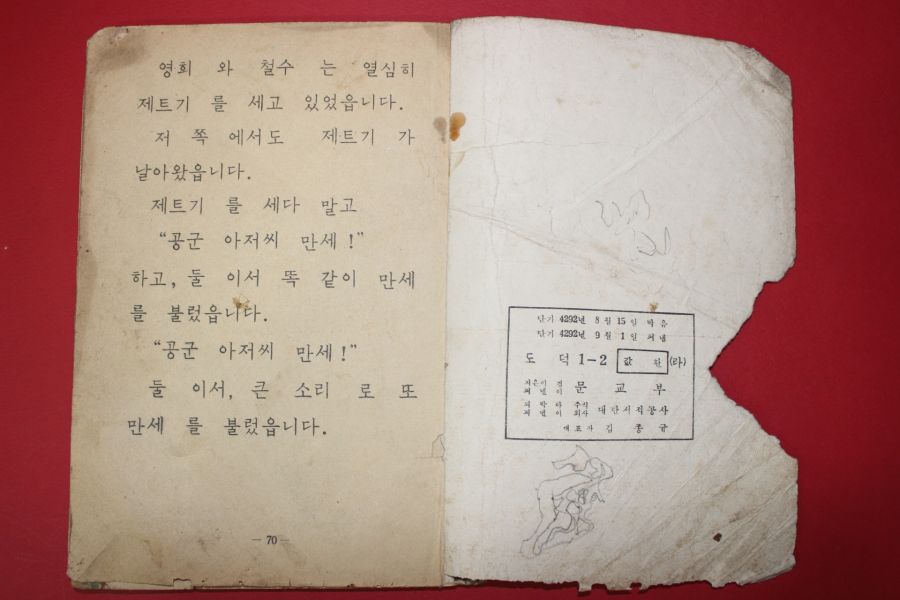 영희 와 철수 는 열심히
제트기 를 세고 있었읍니다.
저 쪽 에서도 제트기 가
날아왔읍니다.
제트기 를 세다 말고
“공군 아저씨 만세!”
하고, 둘 이서 똑 같이 만세
를 불렀읍니다.
“공군 아저씨 만세!”
둘 이서, 큰 소리 로 또
만세 를 불렀읍니다.
— 70 —
단기 4292년 8월 15일 박음
단기 4292년 9월 1일 펴냄
도덕 1-2 값 환 (라)
지은이 겸
펴낸이 문교부
박아 주식
펴낸이 회사 대한서적공사
대표자 김종균